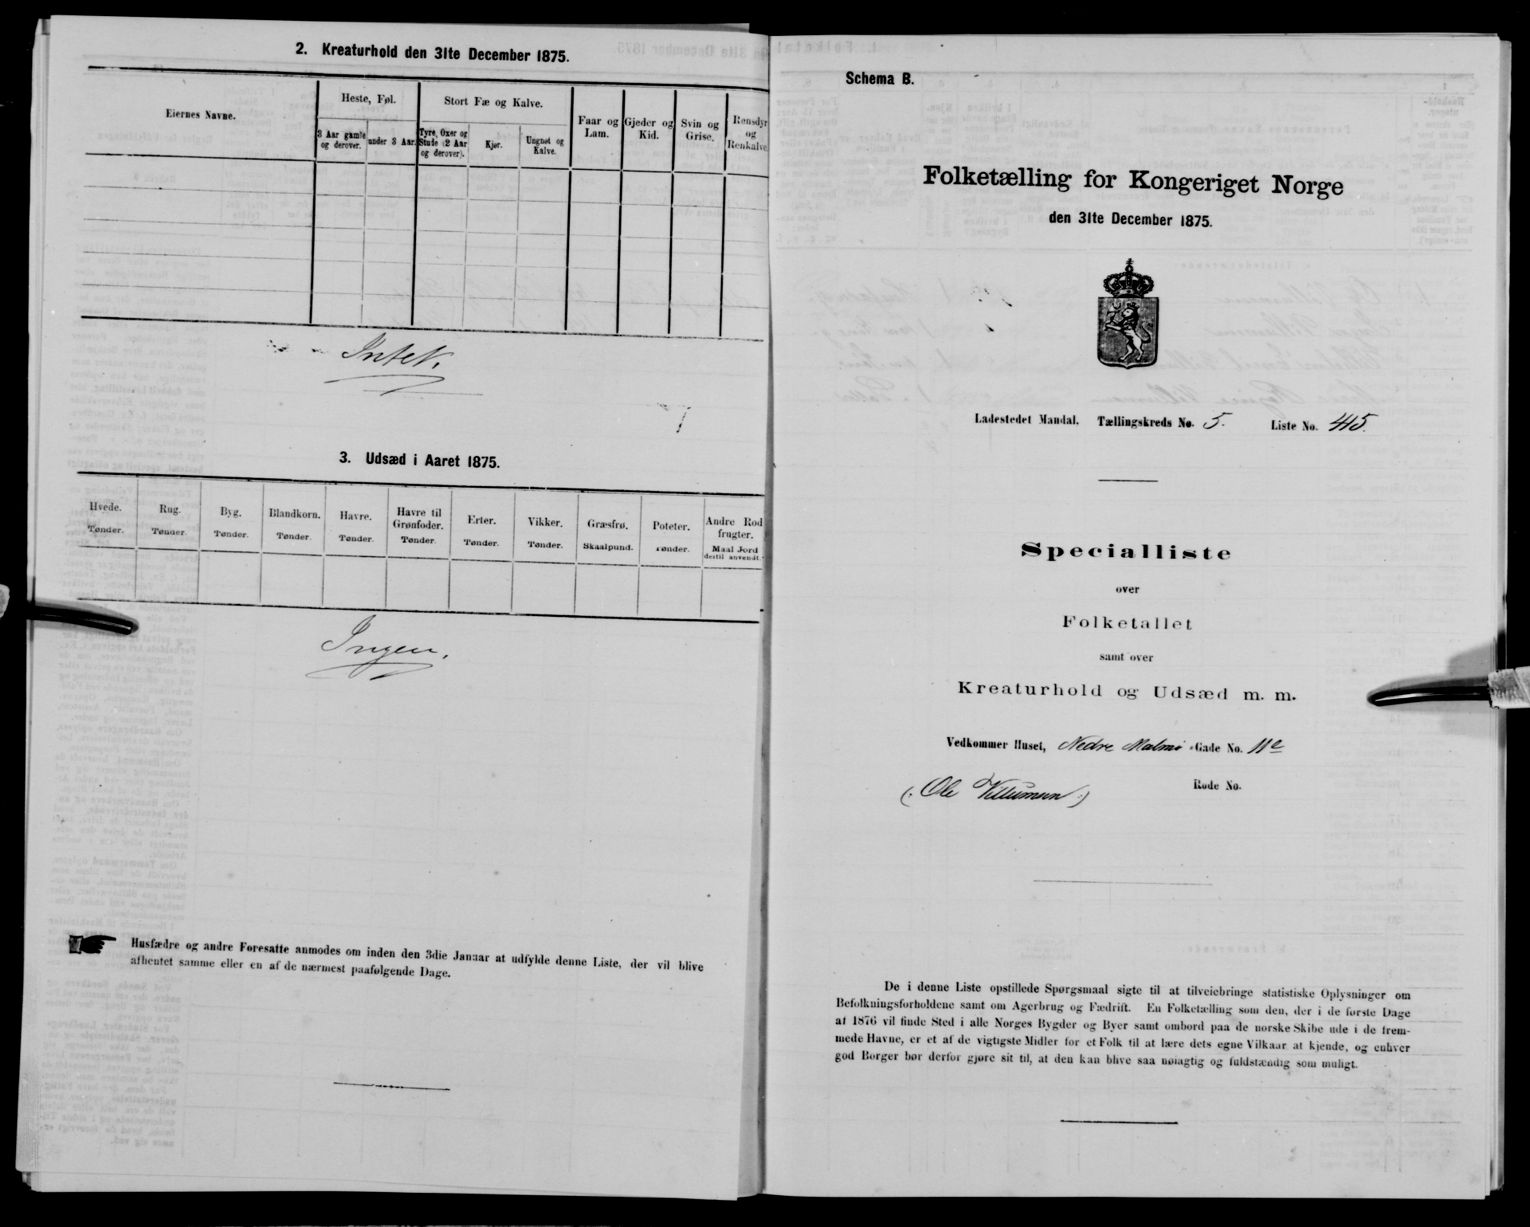 2. Kreaturhold den 31te December 1875.
Eiernes Navne.
Heste, Føl.
Stort Fæ og Kalve.
Faar og Lam.
Gjeder og Kid.
Svin og Grise.
Rensdyr og Renkalve
3 Aar gamle og derover.
under 3 Aar.
Tyre, Oxer og Stude (2 Aar og derover).
Kjør.
Ungnøt og Kalve.
Intet.
3. Udsæd i Aaret 1875.
Hvede. Rug. Byg. Blandkorn. Havre. Havre til Grønfoder. Erter. Vikker. Græsfrø. Poteter. Andre Rod frugter.
Tønder. Tønder. Tønder. Tønder. Tønder. Tønder. Tønder. Tønder. Skaalpund. Tønder. Maal Jord dertil anvendt.
Ingen.
Husfædre og andre Foresatte anmodes om inden den 3die Januar at udfylde denne Liste, der vil blive
afhentet samme eller en af de nærmest paafølgende Dage.
Schema B.
Folketælling for Kongeriget Norge
den 31te December 1875.
Ladestedet Mandal. Tællingskreds No. 5. Liste No. 415.
Specialliste
over
Folketallet
samt over
Kreaturhold og Udsæd m. m.
Vedkommer Huset, Nedre Malmø Gade No. 11c
(: Ole Villumsen :) Rode No.
De i denne Liste opstillede Spørgsmaal sigte til at tilveiebringe statistiske Oplysninger om
Befolkningsforholdene samt om Agerbrug og Fædrift. En Folketælling som den, der i de første Dage
af 1876 vil finde Sted i alle Norges Bygder og Byer samt ombord paa de norske Skibe ude i de frem-
mede Havne, er et af de vigtigste Midler for et Folk til at lære dets egne Vilkaar at kjende, og enhver
god Borger bør derfor gjøre sit til, at den kan blive saa nøiagtig og fuldstændig som muligt.